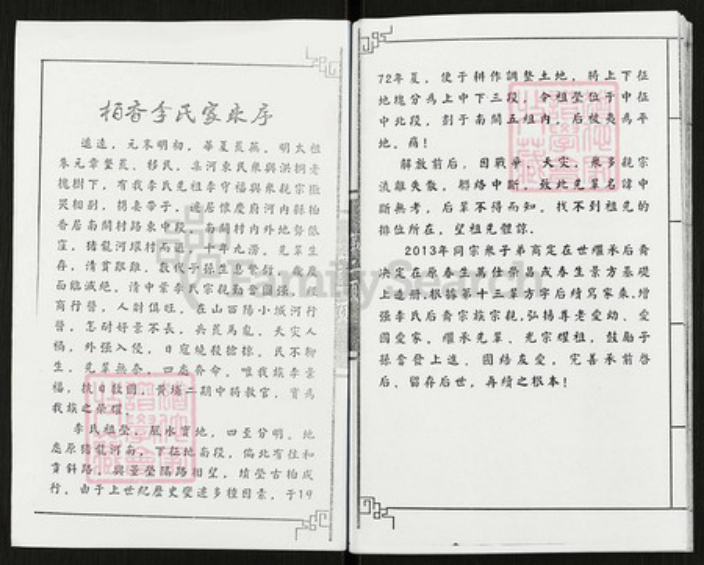 柏香李氏家乘序
遥远，元末明初，華夏荒蕪，明太祖
朱元章墾荒、移民，集河東民衆與洪桐老
槐樹下，有我李氏先祖李守福與衆親宗撒
哭相别，携妻帶子，遷居懷慶府河内縣柏
香居南關村路東中段，南關村内外地勢低
窪，猪龍河堰村而過，十年九澇，先輩生
存，清貧艱難，數代子孫生息繁衍，幾度
面臨滅絶，清中葉李氏宗親勤奮圖强，經
商行醫，人財俱旺，在山西陽小城河行
醫，怎耐好景不長，兵荒馬亂，天灾人
禍，外强入侵，日寇燒殺搶掠，民不聊
生，先輩無奈，四處奔命，唯我族李景
福，抗日救國，黄埔二期中將教官，實爲
我族之榮耀。
李氏祖塋，風水寶地，四至分明，地
處原猪龍河南，下征地南段，偏北有往和
賣斜路，與景塋隔路相望，墳塋古柏成
行，由于上世紀歷史變遷多種因素，于19
72年夏，便于耕作調整土地，將上下征
地塊分爲上中下三段，令祖塋位于中征
中北段，劃于南關五組内，后被夷爲平
地，痛！
解放前后，因戰爭，天灾，衆多親宗
流離失散，聯絡中斷，致北先輩名諱中
斷無考，后輩不得而知，找不到祖先的
排位所在，望祖先體諒。
2013年同宗衆子弟商定在世繼承后裔
决定在原春生萬仕榮昌成春生景方基礎
上造册，根據第十三輩方字后續寫家乘，增
强李氏后裔宗族宗親，弘揚尊老愛幼、愛
國愛家，繼承先輩、光宗耀祖，鼓勵子
孫奮發上進，團结友愛，完善承前啓
后、留存后世，再續之根本！